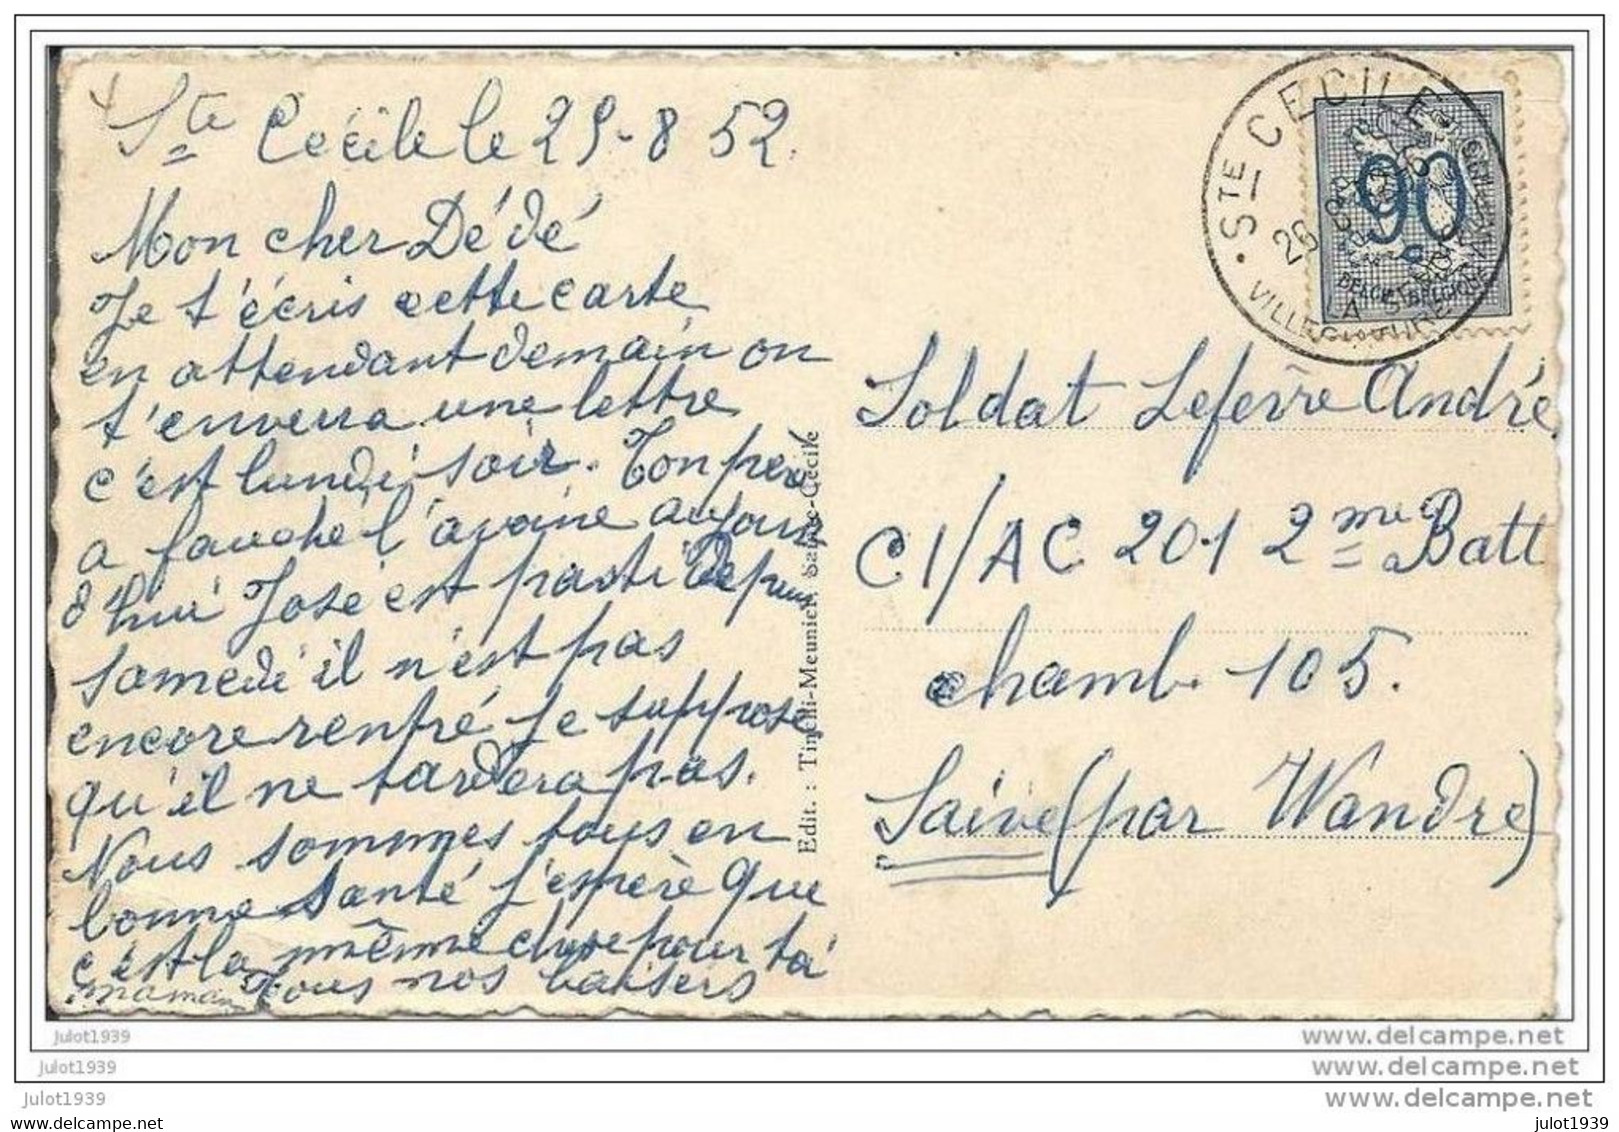 Ste Cécile le 25-8 52.
Mon cher Dédé
Je t'écris cette carte
en attendant demain on
t'enverra une lettre
c'est lundi soir. Ton père
a fauché l'avoine aujour
d'hui José est parti depuis
samedi il n'est pas
encore rentré je suppose
qu'il ne tardera pas.
Nous sommes tous en
bonne santé j'espère que
c'est la même chose pour toi
Tous nos baisers
maman
Edit. : Tinelli-Meunier, Sainte-Cécile
STE CECILE
26
LA SEMOIS
VILLEGIATURE
90
c
BELGIE-BELGIQUE
Soldat Lefèvre André
CI/AC 201 2me Batt
chamb. 105.
Saive (par Wandre)
julot1939
www.delcampe.net
julot1939
www.delcampe.net
julot1939
www.delcampe.net
www.delcampe.net
julot1939